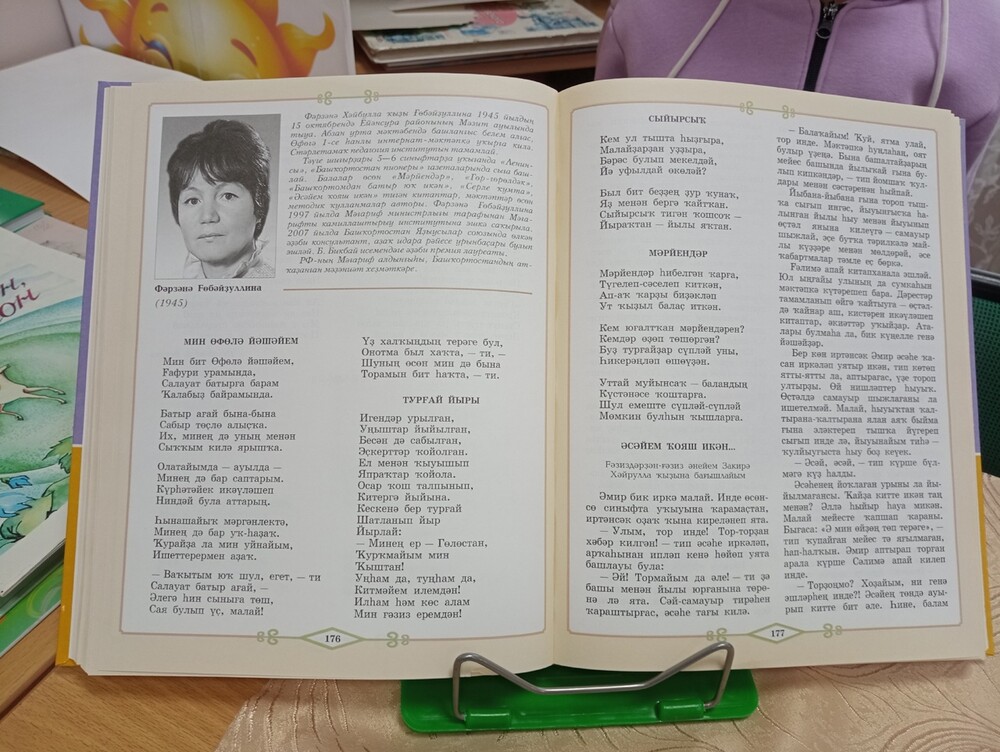 Фәрзәнә Хәйбулла ҡыҙы Ғөбәйҙуллина 1945 йылдың
15 октябрендә Ейәнсура районының Мәзит ауылында
тыуа. Абзан урта мәктәбендә башланғыс белем алғас,
Өфөлә 1-се һанлы интернат-мәктәпкә уҡырға килә.
Стәрлетамаҡ педагогия институтын тамамлай.
Тәүге шиғырҙары 5—6 синыфтарҙа уҡығанда «Ленин-
сы», «Башҡортостан пионеры» гәзиттәрендә сыға баш-
лай. Балалар өсөн «Мәрйендәр», «Гөр-гөрәлдәк»,
«Башҡортомдан батыр юҡ икән», «Серле ҡумта»,
«Әсәйем ҡояш икән» тигән китаптар, мәктәптәр өсөн
методик ҡулланмалар авторы. Фәрзәнә Ғөбәйҙуллина
1997 йылда Мәғариф министрлығы тарафынан Мәғә-
рифте камиллаштырыу институтына эшкә саҡырыла.
2007 йылда Башҡортостан Яҙыусылар союзында өлкән
әҙәби консультант, аҙаҡ идара рәйесе урынбаҫары булып
эшләй. Б. Бикбай исемендәге әҙәби премия лауреаты.
РФ-ның Мәғариф алдынғыһы, Башҡортостандың ат-
ҡаҙанған мәҙәниәт хеҙмәткәре.
Фәрзәнә Ғөбәйҙуллина
(1945)
МИН ӨФӨЛӘ ЙӘШӘЙЕМ
Мин бит Өфөлә йәшәйем,
Ғафури урамында,
Салауат батырға барам
Ҡалабыҙ байрамында.
Батыр ағай бына-бына
Сабыр төҫлө алыҫҡа.
Их, минең дә уның менән
Сыҡҡым килә ярышҡа.
Олатайымда — ауылда —
Минең дә бар саптарым.
Күрһәтәйек икәүләшеп
Ниндәй була аттарың.
Һынашайыҡ мәргәнлектә,
Минең дә бар уҡ-һаҙаҡ.
Ҡурайҙа ла мин уйнайым,
Ишеттерермен аҙаҡ.
— Ваҡытым юҡ шул, егет, — ти
Салауат батыр ағай, —
Әлегә һин сыныға төш,
Сая булып үҫ, малай!
Үҙ халҡыңдың терәге бул,
Онотма был хаҡта, — ти, —
Шуның өсөн мин дә бына
Торамын бит һаҡта, — ти.
ТУРҒАЙ ЙЫРЫ
Игендәр урылған,
Уңыштар йыйылған,
Бесән дә сабылған,
Эҫкерттәр ҡойолған.
Ел менән ҡыуышып
Япраҡтар ҡойола.
Осар ҡош талпынып,
Китергә йыйына.
Кескенә бер турғай
Шатланып йыр
Йырлай:
— Минең ер — Гөлөстан,
Ҡурҡмайым мин
Ҡыштан!
Уңһам да, туңһам да,
Китмәйем илемдән!
Илһам һәм көс алам
Мин ғәзиз еремдән!
176
СЫЙЫРСЫҠ
Кем ул тышта һыҙғыра,
Малайҙарҙан уҙҙыра,
Бәрәс булып мекелдәй,
Йә уфылдай өкөләй?
Был бит беҙҙең ҙур ҡунаҡ,
Яҙ менән бергә ҡайтҡан.
Сыйырсыҡ тигән ҡошсоҡ —
Йыраҡтан — йылы яҡтан.
МӘРЙЕНДӘР
Мәрйендәр һибелгән ҡарға,
Түгелеп-сәселеп киткән,
Ап-аҡ ҡарҙы биҙәкләп
Ут ҡыҙыл балаҫ иткән.
Кем юғалтҡан мәрйендәрен?
Кемдәр өҙөп төшөргән?
Буҙ турғайҙар сүпләй уны,
Һикерәңләп өшөүҙән.
Уттай муйынсаҡ — баландың
Күстәнәсе ҡоштарға.
Шул емеште сүпләй-сүпләй
Мөмкин булһын ҡышларға.
ӘСӘЙЕМ ҠОЯШ ИКӘН...
Ғәзиздәрҙән-ғәзиз әнейем Зәкирә
Хәйрулла ҡыҙына бағышлайым
Әмир бик иркә малай. Инде өсөн-
сө синыфта уҡыуына ҡарамаҫтан,
иртәнсәк оҙаҡ ҡына киреләнеп ята.
— Улым, тор инде! Тор-торҙан
хәбәр килгән! — тип әсәһе иркәләп,
арҡаһынан ипләп кенә һөйөп уята
башлауы була:
— Әй! Тормайым да әле! — ти ҙә
башы менән йылы юрғанына төрө-
нә лә ята. Сәй-самауыр тирәһен
ҡараштырғас, әсәһе тағы килә.
— Балаҡайым! Ҡуй, ятма улай,
тор инде. Мәктәпкә һуңлаһаң, оят
булыр үҙеңә. Бына башалтайҙарың
мейес башында йылыҡай ғына бу-
лып кипкәндәр, — тип йомшаҡ ҡул-
дары менән сәстәренән һыйпай.
Йыбана-йыбана ғына тороп тыш-
ҡа сығып ингәс, йыуынғысҡа һа-
лынған йылы һыу менән йыуынып
өҫтәл янына килеүгә — самауыр
шыжлай, әсе бутҡа тәрилкәлә май-
лы күҙҙәре менән мөлдөрәй, әсе
ҡабартмалар тәмле еҫ бөркә.
Ғәлимә апай китапханала эшләй.
Юл ыңғайы улының да сумкаһын
мәктәпкә күтәрешеп бара. Дәрестәр
тамамланып өйгә ҡайтыуға — өҫтәл-
дә ҡайнар аш, кистәрен икәүләшеп
китаптар, әкиәттәр уҡыйҙар. Ата-
лары булмаһа ла, бик күңелле генә
йәшәйҙәр.
Бер көн иртәнсәк Әмир әсәһе ҡа-
сан иркәләп уятыр икән, тип көтөп
ятты-ятты ла, аптырағас, үҙе тороп
ултырҙы. Өй нишләптер һыуыҡ.
Өҫтәлдә самауыр шыжлағаны ла
ишетелмәй. Малай, һыуыҡтан ҡал-
тырана-ҡалтырана ялан аяҡ быйма
ғына эләктереп тышҡа йүгереп
сығып инде лә, йыуынайым тиһә —
ҡулйыуғыста һыу боҙ кеүек.
— Әсәй, әсәй, — тип күрше бүл-
мәгә күҙ һалды.
Әсәһенең йоҡлаған урыны ла йы-
йылмағансы. Ҡайҙа китте икән таң
менән? Әллә һыйыр һауа микән.
Малай мейесте ҡапшап ҡараны.
Бығаса: «Ә мин өйҙең төп терәге», —
тип ҡупайған мейес тә яғылмаған,
һап-һалҡын. Әмир аптырап торған
арала күрше Сәлимә апай килеп
инде.
— Торҙоңмо? Хоҙайым, ни генә
эшләрһең инде?! Әсәйең төндә ауы-
рып китте бит әле. Һине, балам
177